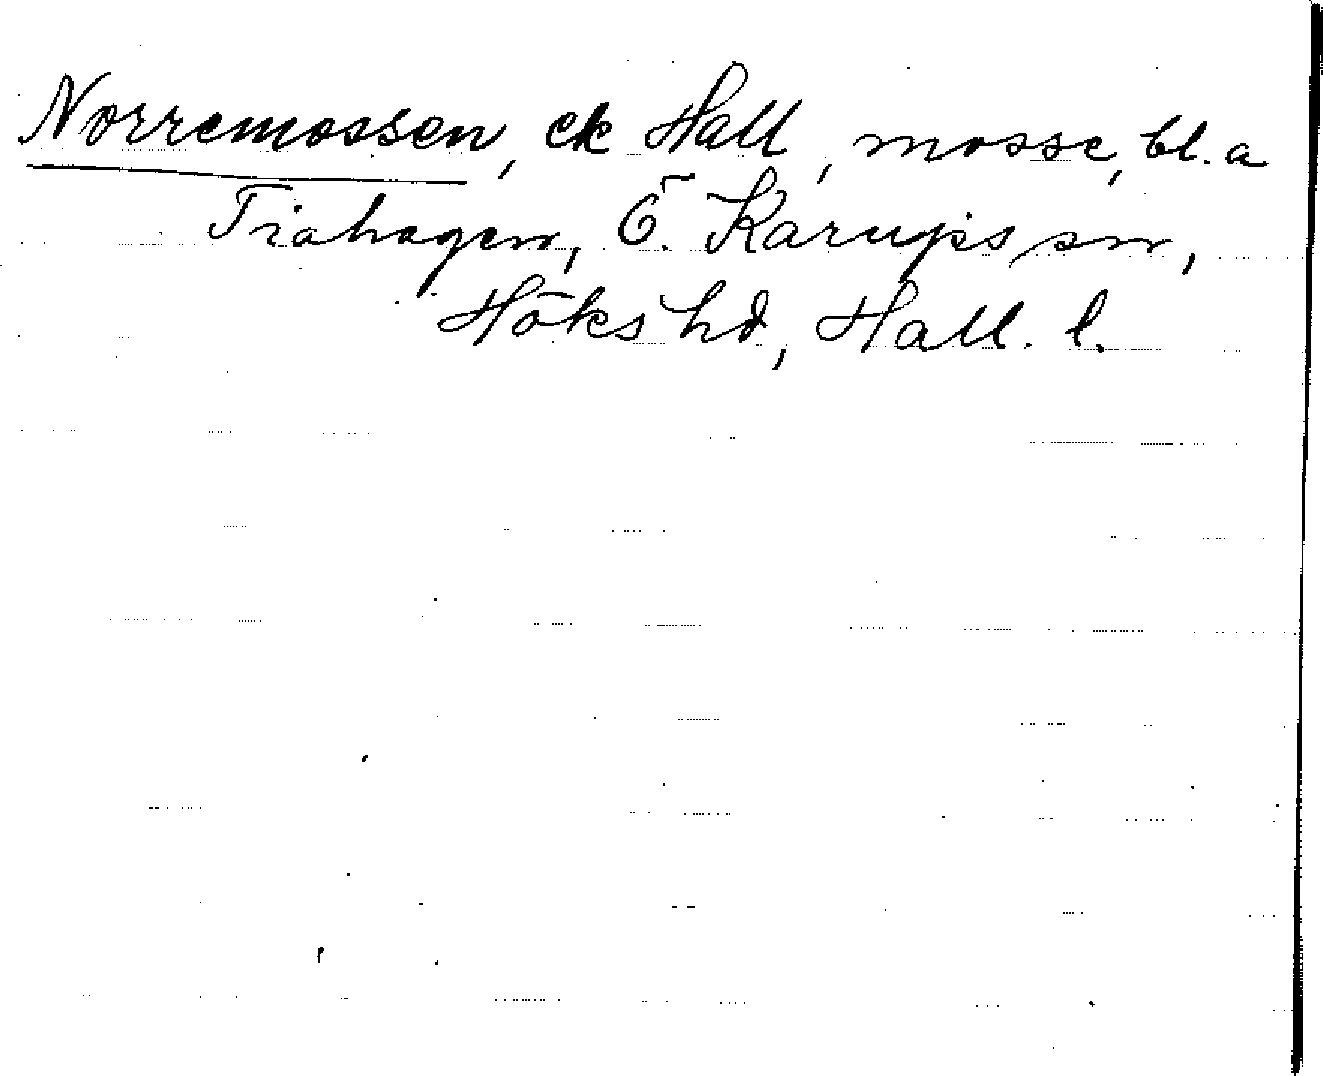 Norremossen, ek Hall, mosse, bl.a
Tiahagen, Ö. Karups sn,
Höks hd, Hall. l.